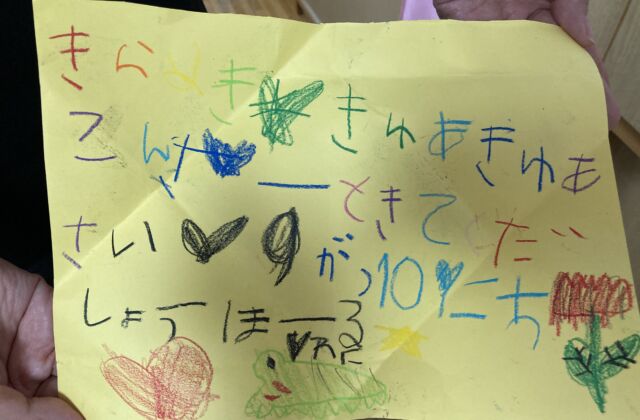 きらめききゅあきゅあ
こんさーときてくだ
さい 9がつ10にち
しょうほーる